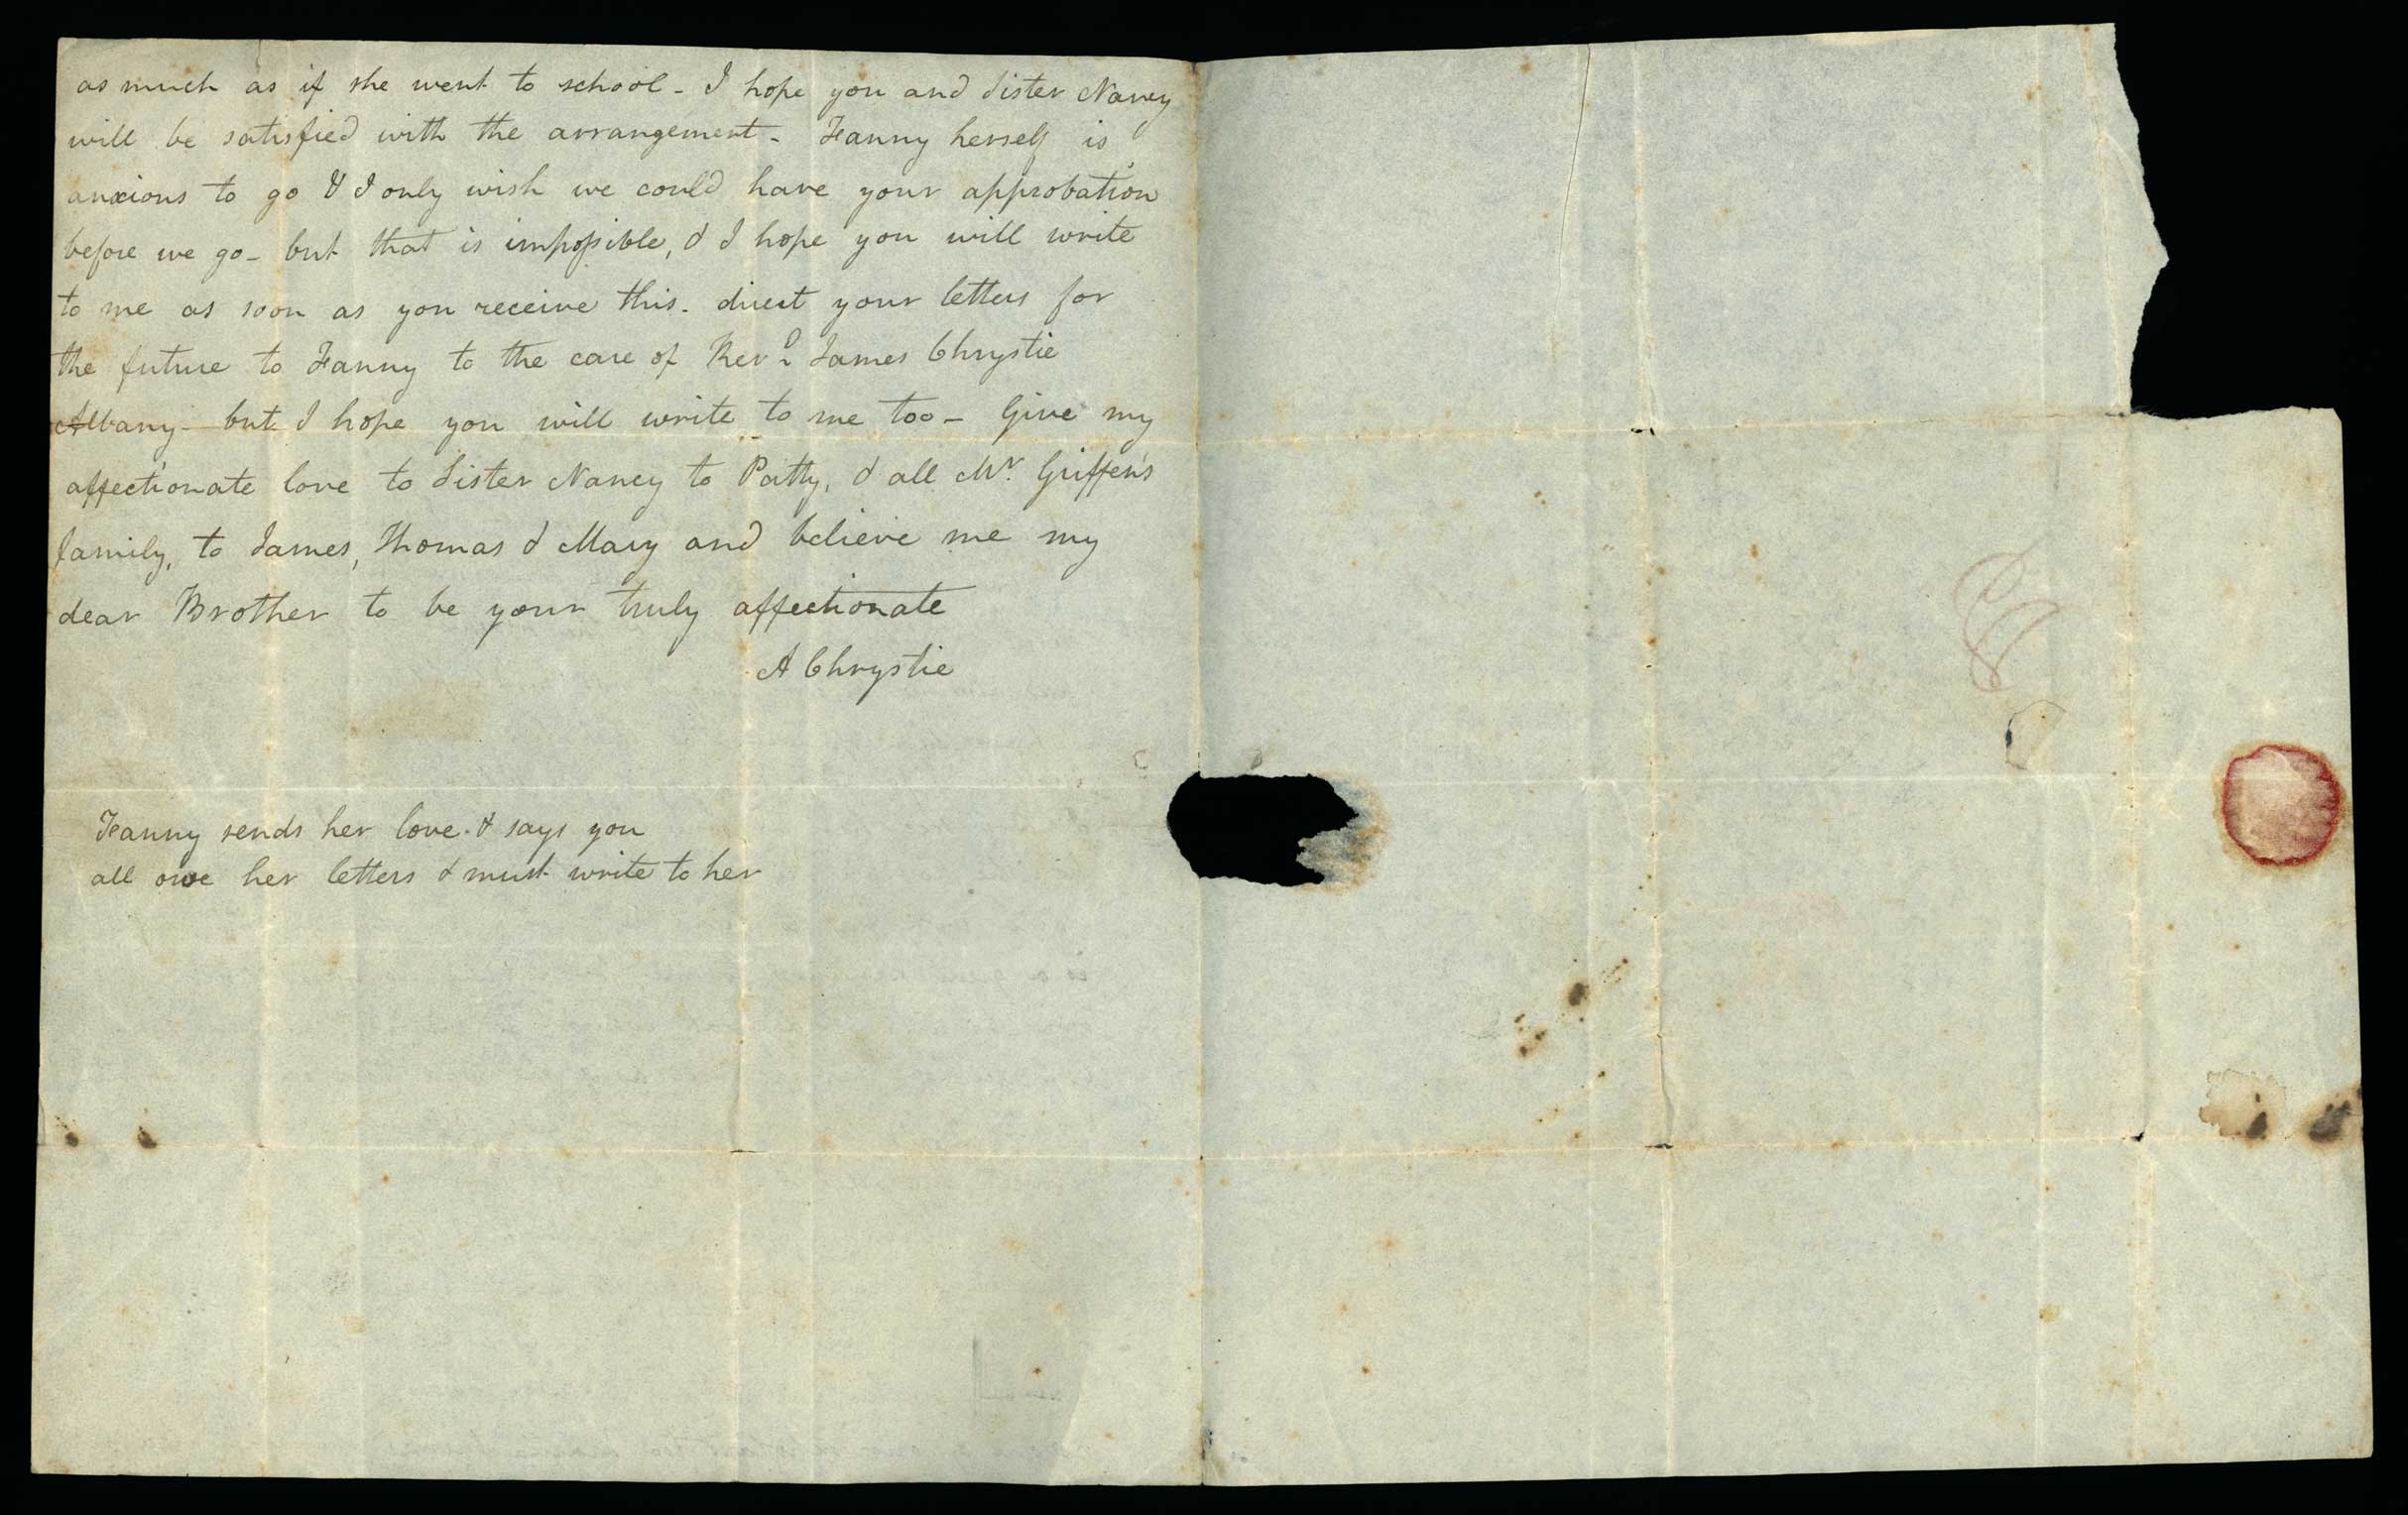 as much as if she went to school - I hope you and Sister Nancy
will be satisfied with the arrangement - Fanny herself is
anxious to go & I only wish we could have your approbation
before we go - but that is impossible, & I hope you will write
to me as soon as you receive this. direct your letters for
the future to Fanny to the care of Revd James Chrystie
Albany - but I hope you will write to me too - Give my
affectionate love to Sister Nancy to Patty, & all Mr. Griffen's
family, to James, Thomas & Mary and believe me my
dear Brother to be your truly affectionate
A Chrystie
Fanny sends her love & says you
all owe her letters & must write to her